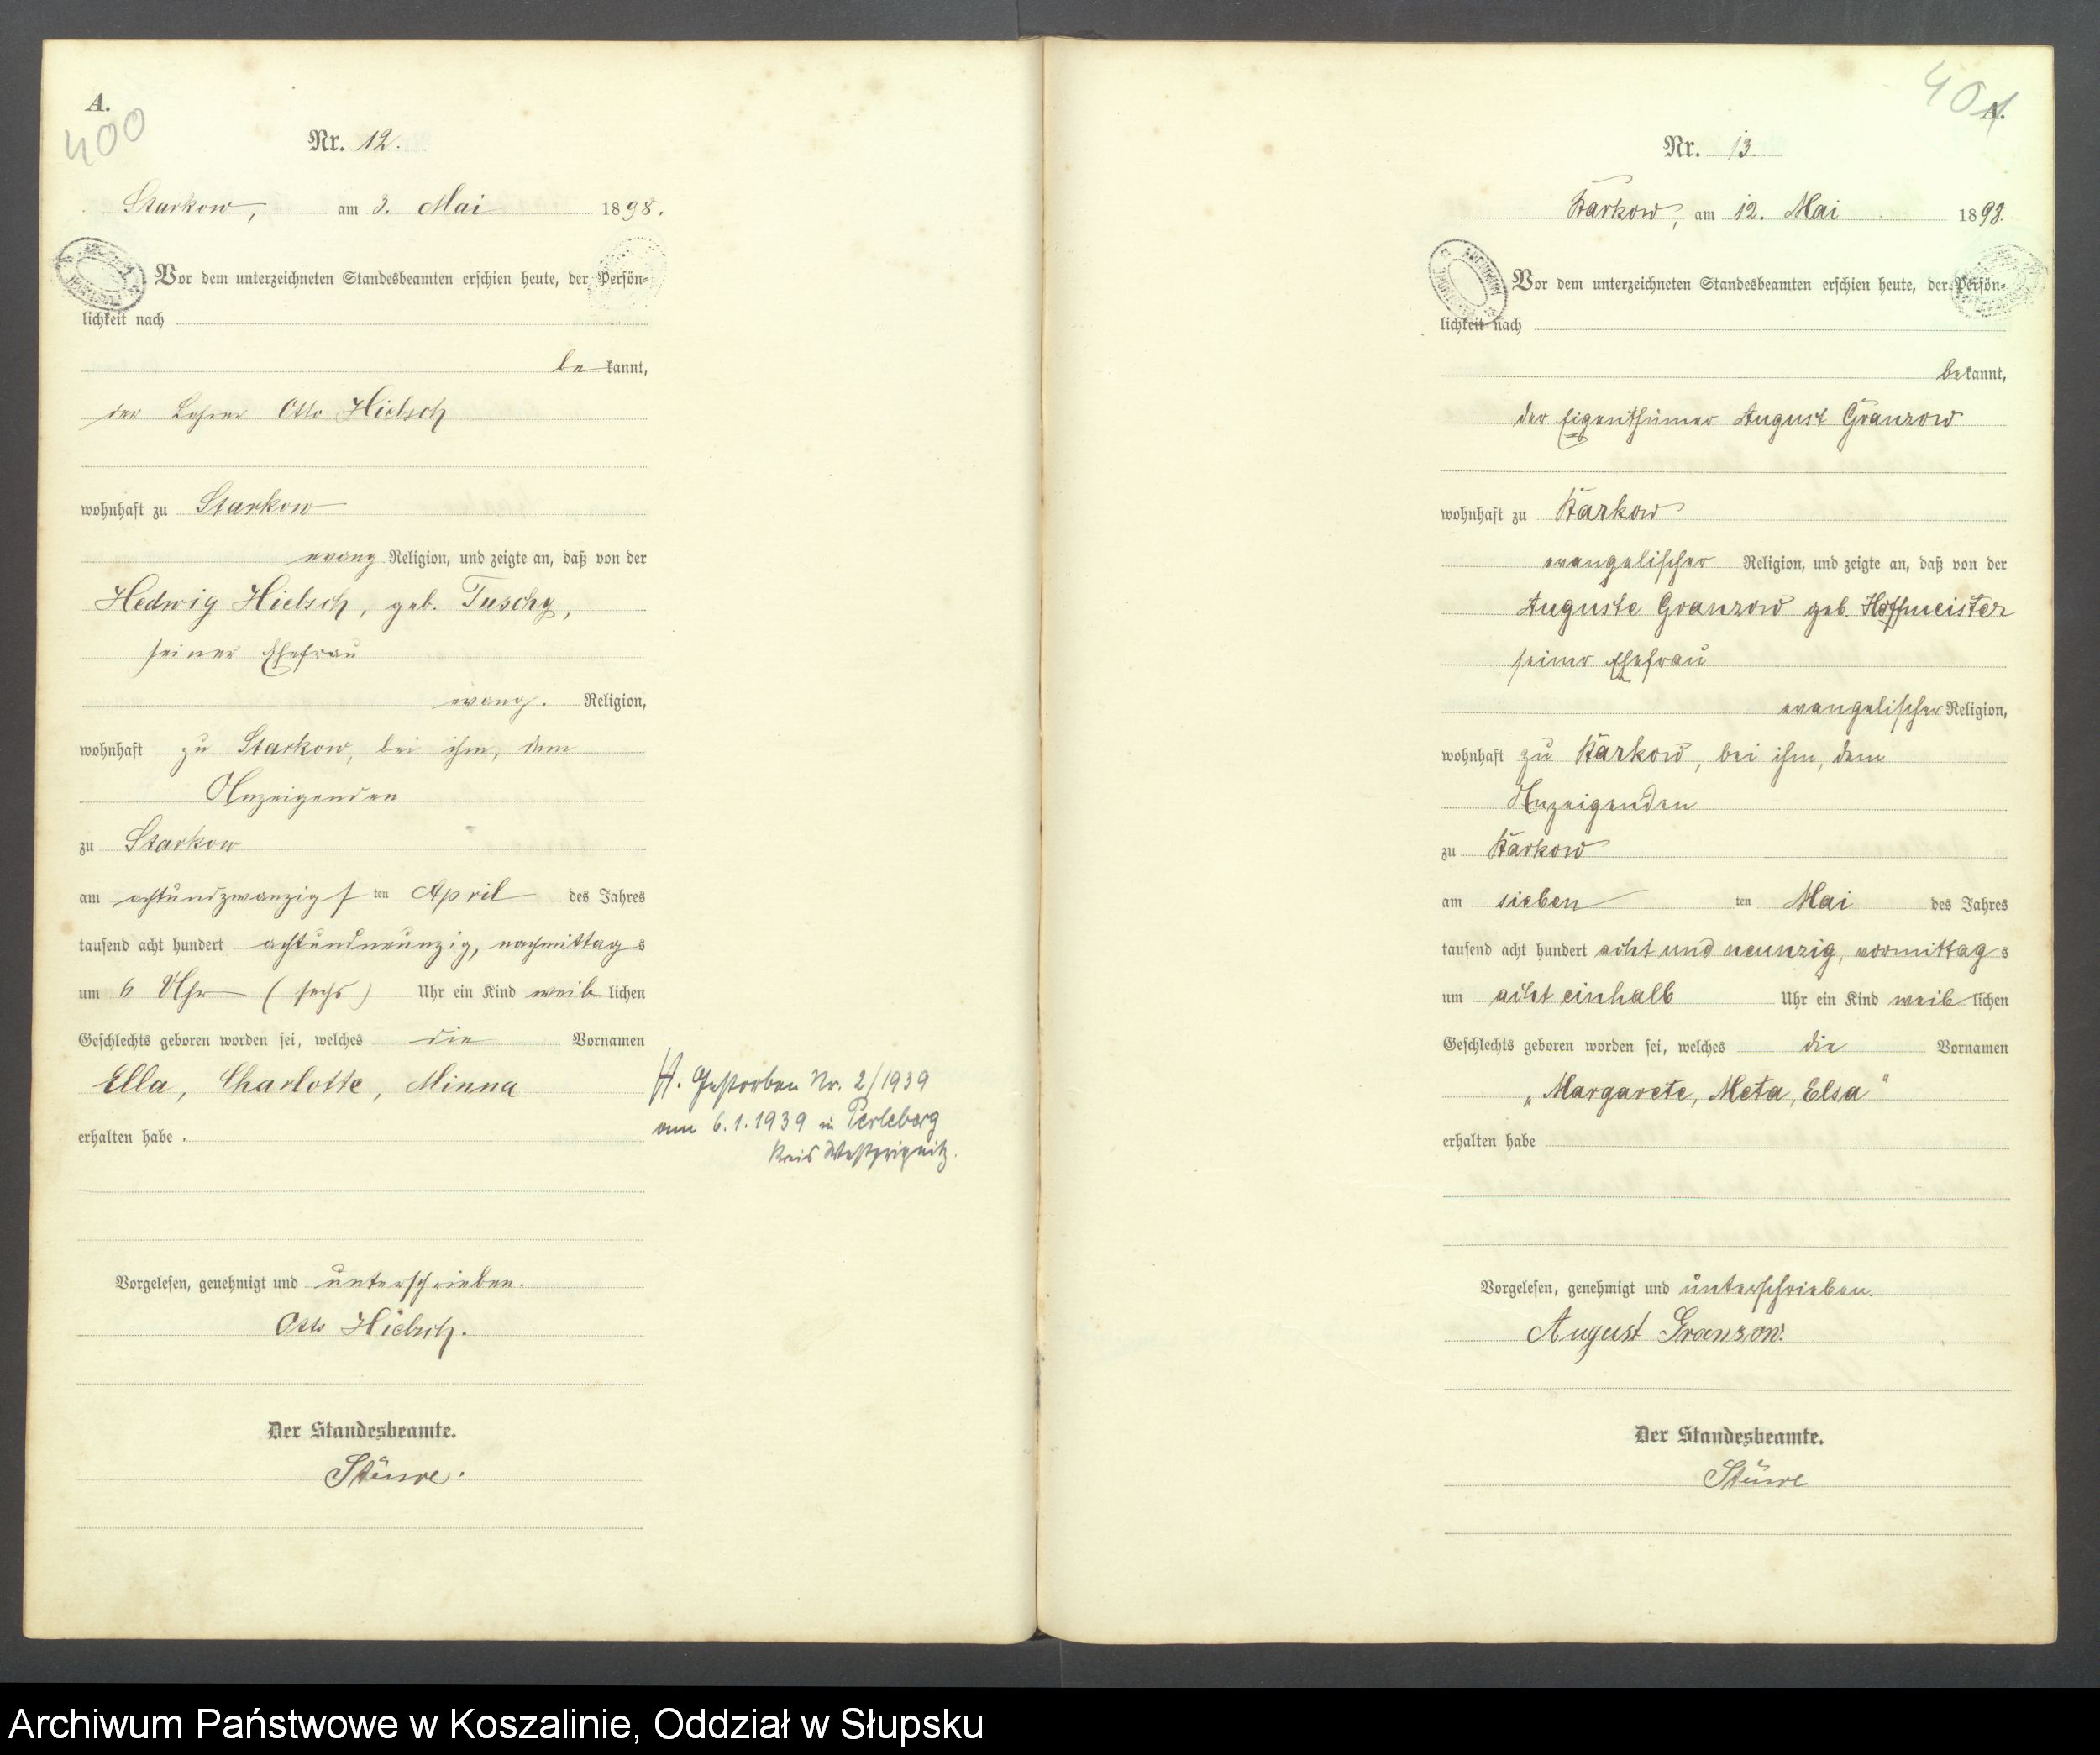 A.
400
Nr. 12.
Starkow, am 3. Mai 1898.
Vor dem unterzeichneten Standesbeamten erschien heute, der Persön-
lichkeit nach
be kannt,
der Lehrer Otto Hielsch
wohnhaft zu Starkow
evang Religion, und zeigte an, daß von der
Hedwig Hielsch, geb. Tuschy,
seiner Ehefrau
evang. Religion,
wohnhaft zu Starkow, bei ihm, dem
Anzeigenden
zu Starkow
am achtundzwanzigsten April des Jahres
tausend acht hundert achtundneunzig, nachmittags
um 6 Uhr (sechs) Uhr ein Kind weiblichen
Geschlechts geboren worden sei, welches die Vornamen
Ella, Charlotte, Minna
erhalten habe.
H. Gestorben Nr. 2/1939
am 6.1.1939 in Perleberg
Kreis Westprignitz.
Vorgelesen, genehmigt und unterschrieben.
Otto Hielsch.
Der Standesbeamte.
Stüwe.
401
A.
Nr. 13.
Starkow, am 12. Mai 1898.
Vor dem unterzeichneten Standesbeamten erschien heute, der Persön-
lichkeit nach
bekannt,
der Eigenthümer August Granzow
wohnhaft zu Starkow
evangelischer Religion, und zeigte an, daß von der
Auguste Granzow geb. Hoffmeister
seiner Ehefrau
evangelischer Religion,
wohnhaft zu Starkow, bei ihm, dem
Anzeigenden
zu Starkow
am sieben ten Mai des Jahres
tausend acht hundert acht und neunzig, vormittags
um acht einhalb Uhr ein Kind weiblichen
Geschlechts geboren worden sei, welches die Vornamen
„Margarete, Meta, Elsa"
erhalten habe
Vorgelesen, genehmigt und unterschrieben.
August Granzow.
Der Standesbeamte.
Stüwe
Archiwum Państwowe w Koszalinie, Oddział w Słupsku